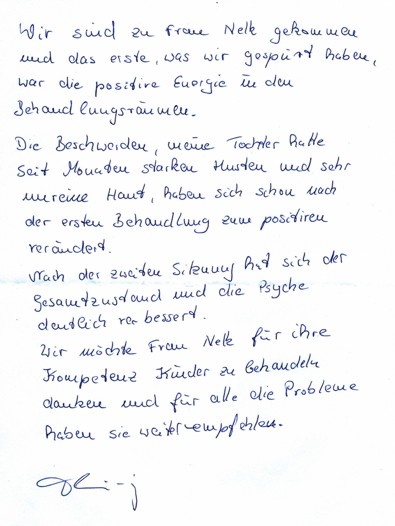 Wir sind zu Frau Nelk gekommen
und das erste, was wir gespürt haben,
war die positive Energie in den
Behandlungsräumen.
Die Beschwerden, meine Tochter hatte
seit Monaten starken Husten und sehr
unreine Haut, haben sich schon nach
der ersten Behandlung zum positiven
verändert.
Nach der zweiten Sitzung hat sich der
Gesamtzustand und die Psyche
deutlich verbessert.
Wir möchte Frau Nelk für ihre
Kompetenz Kinder zu behandeln
danken und für alle die Probleme
haben sie weiterempfehlen.